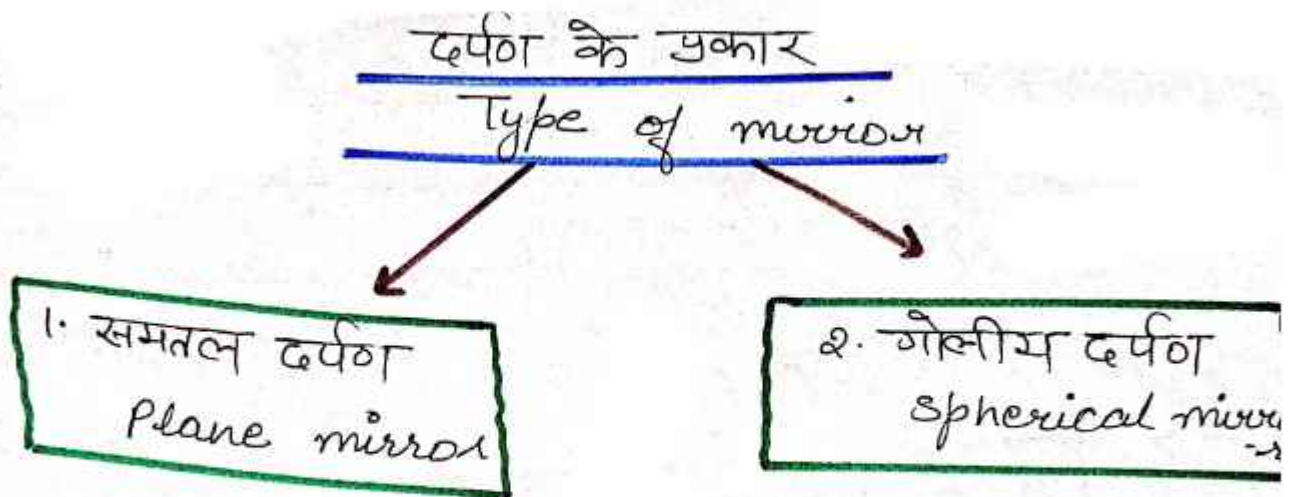 दर्पण के प्रकार
Type of mirror
1. समतल दर्पण
Plane mirror
२. गोलीय दर्पण
spherical mirr
-r